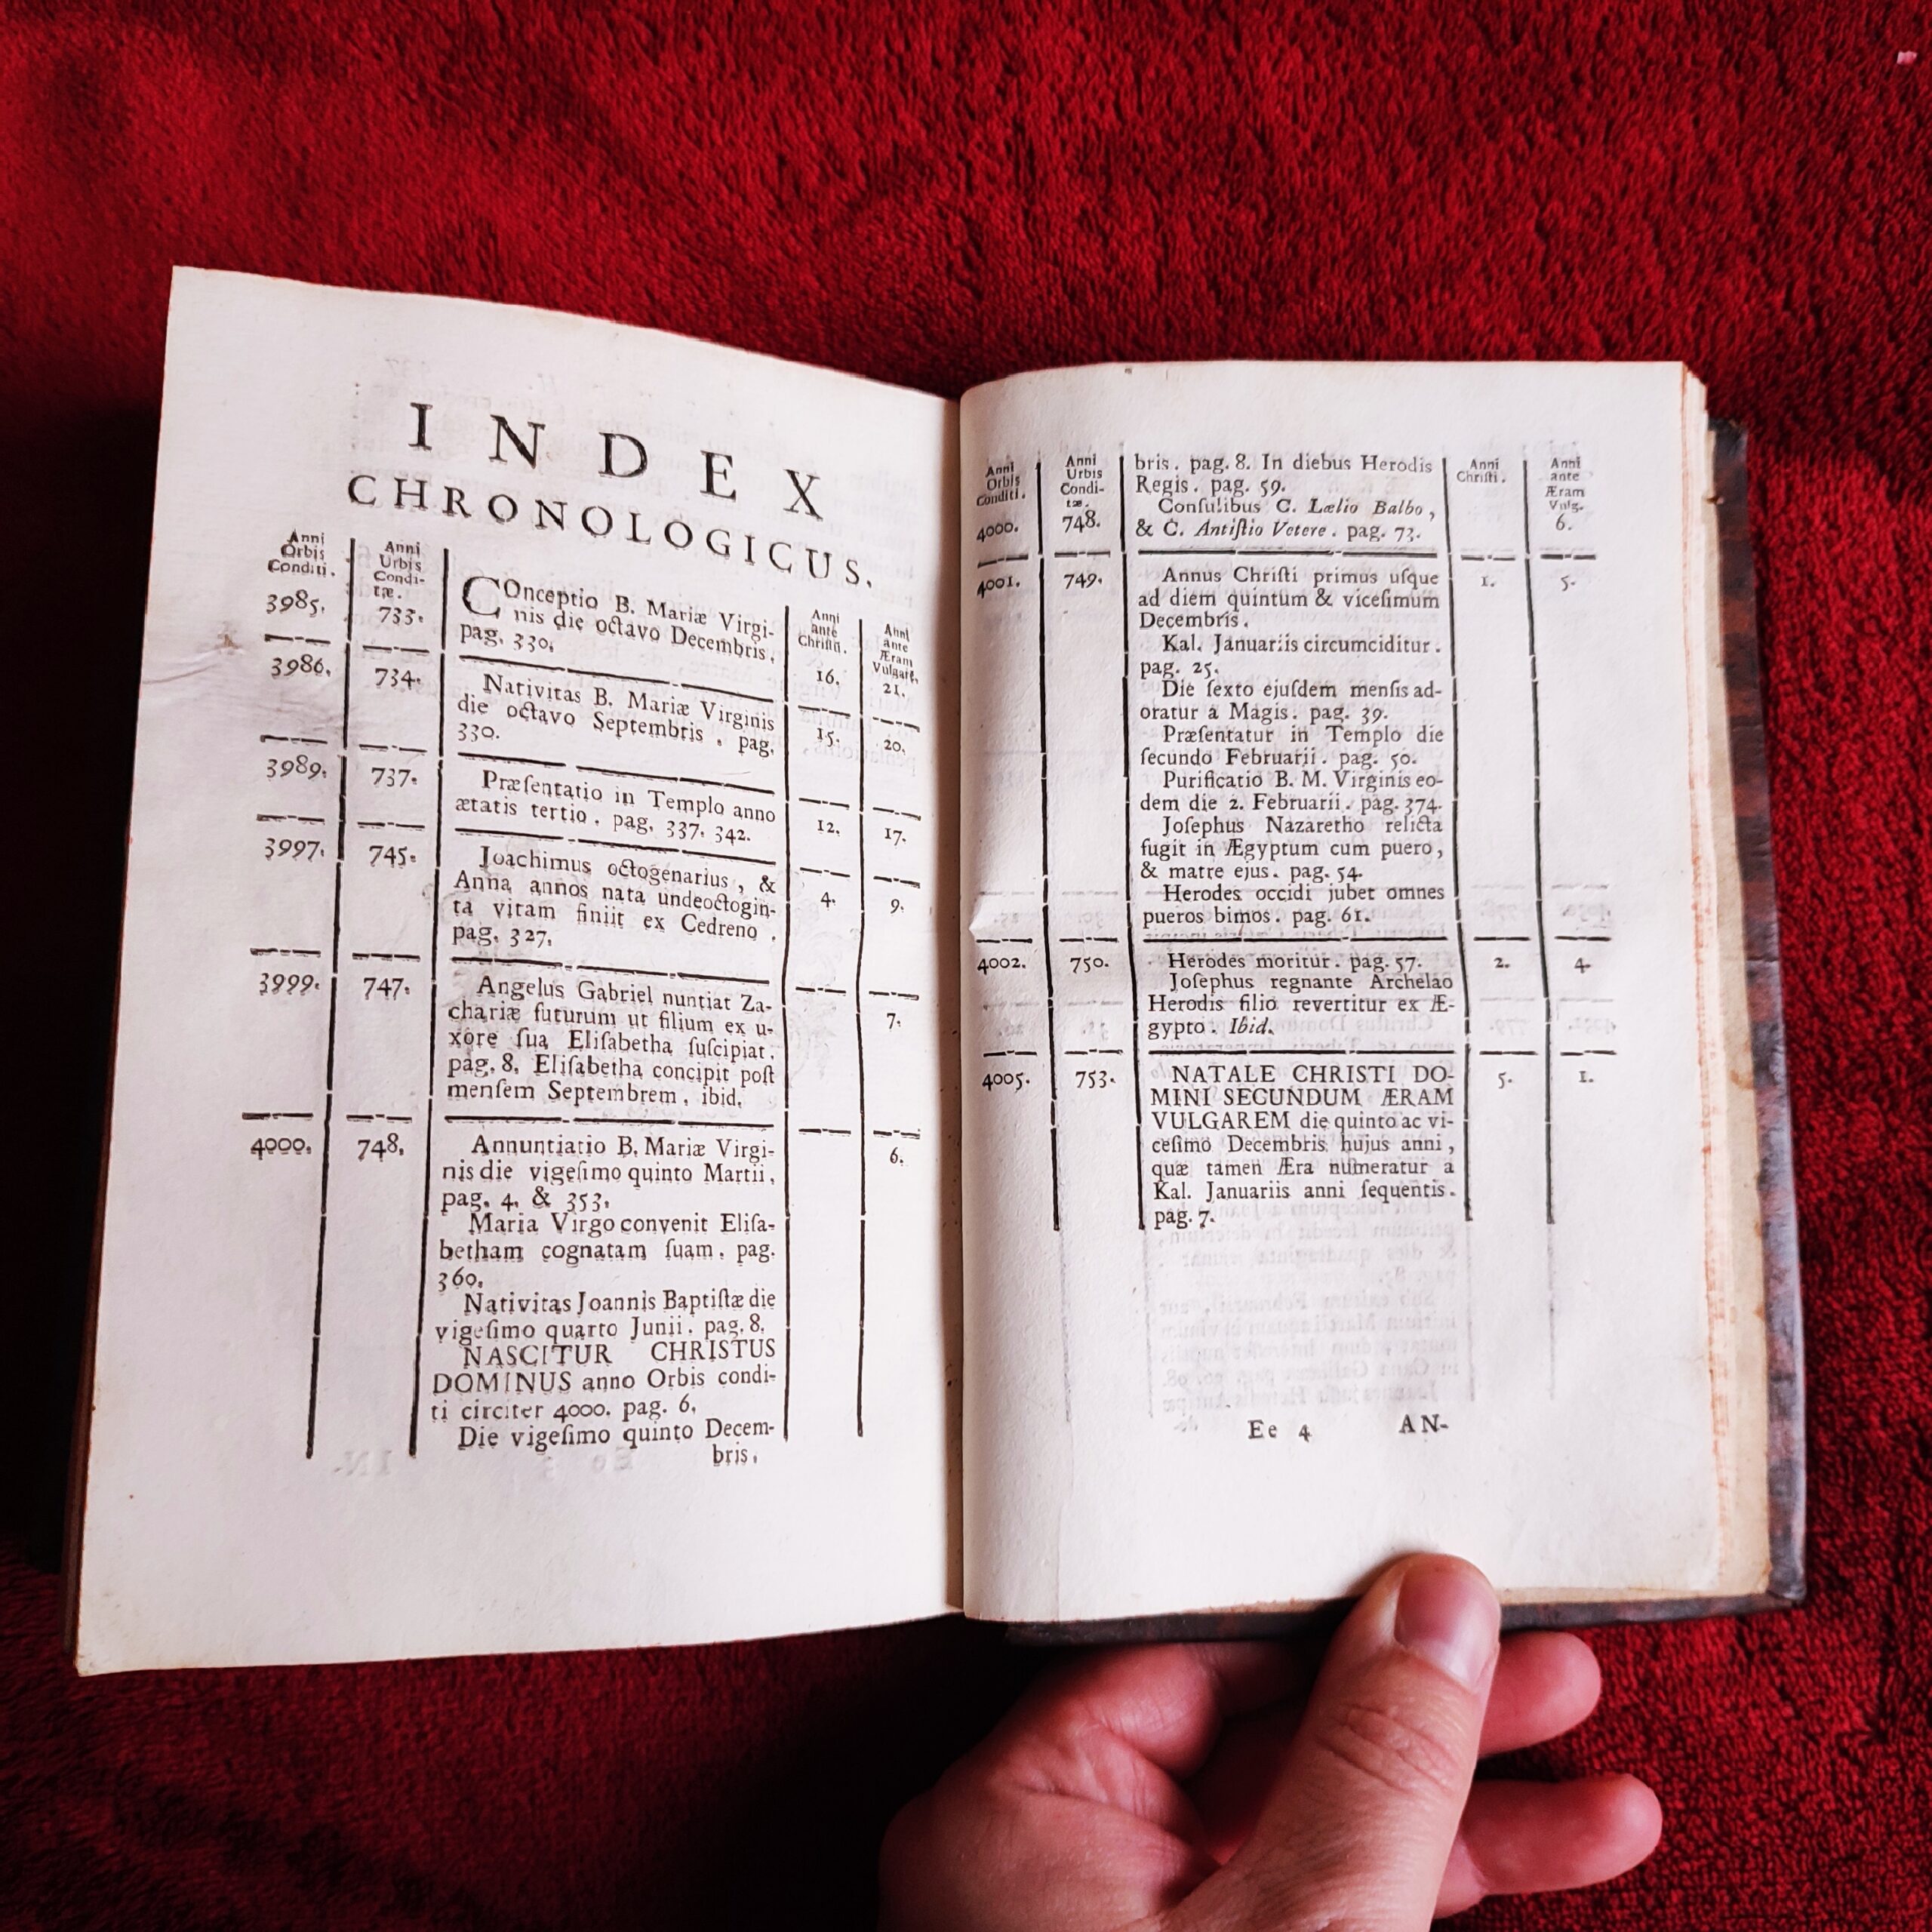 INDEX
CHRONOLOGICUS.
Anni
Orbis
Conditi.
Anni
Urbis
Condi-
tæ.
Anni
ante
Christũ.
Anni
ante
Æram
Vulgarẽ.
3985. 733. COnceptio B. Mariæ Virgi- 16. 21.
nis die octavo Decembris,
pag. 330.
3986. 734. Nativitas B. Mariæ Virginis 15. 20.
die octavo Septembris . pag.
330.
3989. 737. Præſentatio in Templo anno 12. 17.
ætatis tertio . pag. 337. 342.
3997. 745. Joachimus octogenarius , & 4. 9.
Anna annos nata undeoctogin-
ta vitam finiit ex Cedreno .
pag. 327.
3999. 747. Angelus Gabriel nuntiat Za- 7.
chariæ futurum ut filium ex u-
xore ſua Eliſabetha ſuſcipiat.
pag. 8. Eliſabetha concipit poſt
menſem Septembrem , ibid.
4000. 748. Annuntiatio B. Mariæ Virgi- 6.
nis die vigeſimo quinto Martii,
pag. 4. & 353.
Maria Virgo convenit Eliſa-
betham cognatam ſuam. pag.
360.
Nativitas Joannis Baptiſtæ die
vigeſimo quarto Junii. pag. 8.
NASCITUR CHRISTUS
DOMINUS anno Orbis condi-
ti circiter 4000. pag. 6.
Die vigeſimo quinto Decem-
bris.
Anni
Orbis
Conditi.
Anni
Urbis
Condi-
tæ.
Anni
Chriſti.
Anni
ante
Æram
Vulg.
bris. pag. 8. In diebus Herodis
Regis. pag. 59.
Conſulibus C. Lælio Balbo ,
4000. 748. & C. Antiſtio Vetere. pag. 73. 6.
4001. 749. Annus Chriſti primus uſque 1. 5.
ad diem quintum & viceſimum
Decembris.
Kal. Januariis circumciditur.
pag. 25.
Die ſexto ejuſdem menſis ad-
oratur a Magis. pag. 39.
Præſentatur in Templo die
ſecundo Februarii. pag. 50.
Purificatio B. M. Virginis eo-
dem die 2. Februarii. pag. 374.
Joſephus Nazaretho relicta
fugit in Ægyptum cum puero,
& matre ejus. pag. 54.
Herodes occidi jubet omnes
pueros bimos. pag. 61.
4002. 750. Herodes moritur. pag. 57. 2. 4.
Joſephus regnante Archelao
Herodis filio revertitur ex Æ-
gypto. Ibid.
4005. 753. NATALE CHRISTI DO- 5. 1.
MINI SECUNDUM ÆRAM
VULGAREM die quinto ac vi-
ceſimo Decembris hujus anni,
quæ tamen Æra numeratur a
Kal. Januariis anni ſequentis.
pag. 7.
Ee 4 AN-